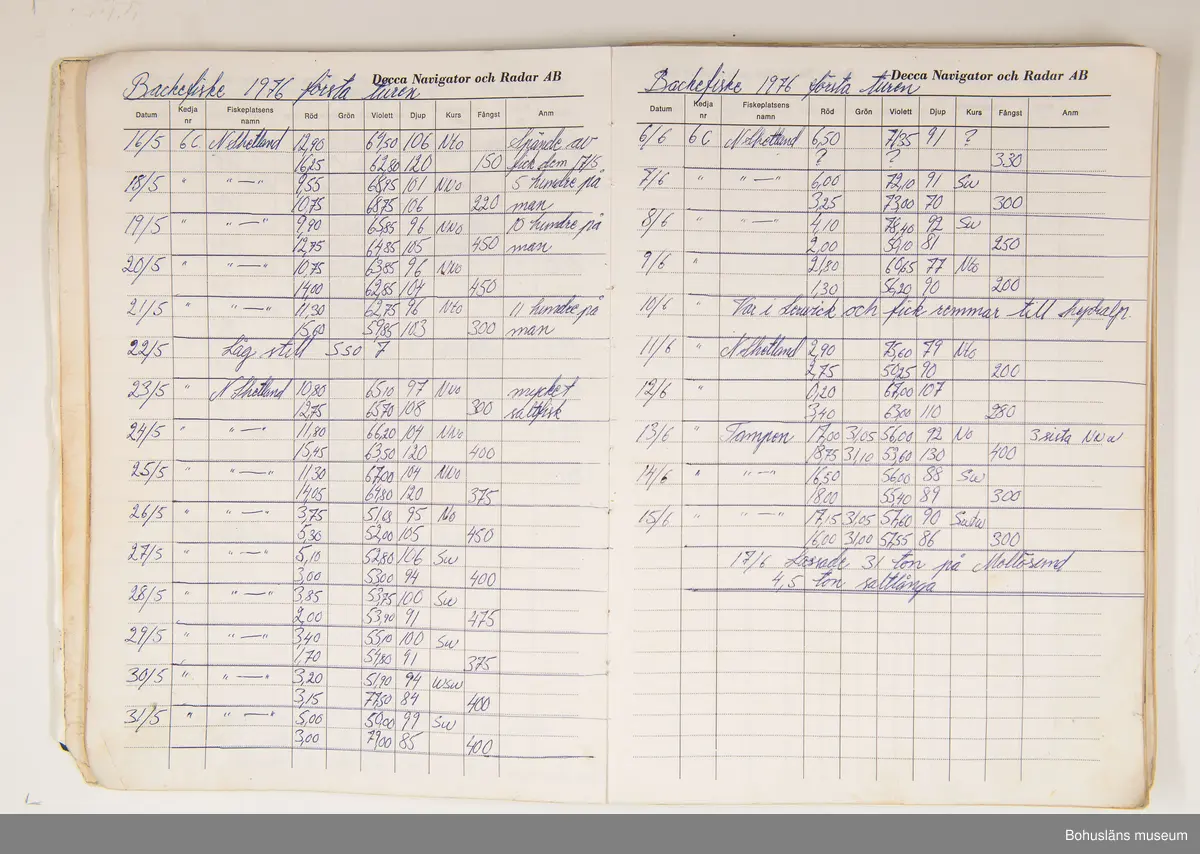 Decca Navigator och Radar AB
Backefiske 1976 första turen
Datum Kedja nr Fiskeplatsens namn Röd Grön Violett Djup Kurs Fångst Anm
16/5 6C N Shetland 12,90 69,50 106 Nto av
16,25 62,80 120 150 fick dem 17/5
18/5 " "—" 9,55 68,95 101 NNo 5 hundre på
10,75 68,75 106 220 man
19/5 " "—" 9,90 65,85 96 NNo 10 hundre på
12,75 64,85 105 450 man
20/5 " "—" 10,75 63,85 96 NNo
14,00 62,85 104 450
21/5 " "—" 11,30 62,75 96 Nto 11 hundre på
15,60 59,85 103 300 man
22/5 Låg still SSO 7
23/5 " N Shetland 10,80 65,10 97 NNo mycket
12,75 65,70 108 300 saltfisk
24/5 " "—" 11,80 66,20 104 NNo
15,45 63,50 120 400
25/5 " "—" 11,30 67,00 104 NNo
14,05 64,80 120 375
26/5 " "—" 3,75 51,68 95 No
5,30 52,00 105 450
27/5 " "—" 5,10 52,80 106 Sw
3,00 53,00 94 400
28/5 " "—" 3,85 53,75 100 Sw
2,00 53,90 91 475
29/5 " "—" 3,40 55,10 100 Sw
1,70 54,80 91 375
30/5 " "—" 3,20 51,90 94 WSW
3,15 77,50 84 400
31/5 " "—" 5,00 50,00 99 Sw
3,00 79,00 85 400
Decca Navigator och Radar AB
Backefiske 1976 första turen
Datum Kedja nr Fiskeplatsens namn Röd Grön Violett Djup Kurs Fångst Anm
6/6 6C N Shetland 6,50 71,35 91 ?
? ? 330
7/6 " "—" 6,00 72,10 91 Sw
3,25 73,00 70 300
8/6 " "—" 4,10 78,40 92 Sw
2,00 59,10 81 250
9/6 " 2,80 60,65 77 Nto
1,30 56,20 90 200
10/6 " Var i Lerwick och fick remmar till
11/6 N Shetland 2,90 75,60 79 Nto
2,75 50,25 90 200
12/6 " 0,20 67,00 107
3,40 63,00 110 280
13/6 " Tampen 17,00 31,05 56,00 92 No 3 sista
18,75 31,10 53,60 130 400
14/6 " "—" 16,50 56,00 88 Sw
18,00 55,40 89 300
15/6 " "—" 17,15 31,05 57,60 90 Sw
16,00 31,00 57,55 86 300
17/6 Lossade 31 ton på Moltösund
4,5 ton saltlånga
Bohusläns museum